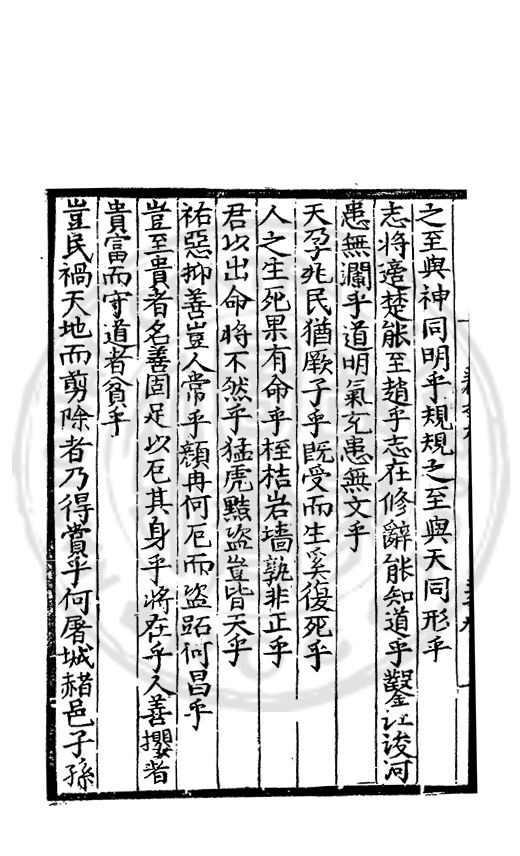 之至與神同明乎規規之至與天同形乎
志將適楚能至趙乎志在修辭能知道乎鑿江浚河
患無瀾乎道明氣充患無文乎
天孕兆民猶厥子乎既受而生奚復死乎
人之生死果有命乎桎梏岩墻孰非正乎
君以出命將不然乎猛虎黠盜豈皆天乎
祐惡抑善豈人常乎顏冉何厄而盜跖何昌乎
豈至貴者名善固足以厄其身乎將在乎人善攖者
貴富而守道者貧乎
豈民禍天地而剪除者乃得賞乎何屠城赭邑子孫